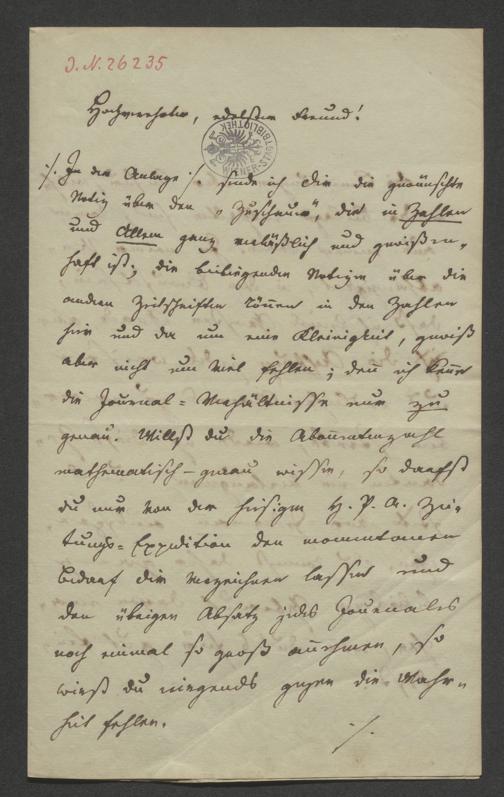 I. N. 26235
Hochverehrter, edelster Freund!
./. In der Anlage ./. sende ich Dir die gewünschte
Notiz über den „Zuschauer“, die in Zahlen
und Allem ganz verläßlich und gewissen-
haft ist; die beiliegenden Notizen über die
andern Zeitschriften können in den Zahlen
hier und da um eine Kleinigkeit, gewiß
aber nicht um viel fehlen; denn ich kenne
die Journal-Verhältnisse nur zu
genau. Willst du die Abonnentenzahl
mathematisch-genau wissen, so darfst
du nur von der hiesigen H. P. A. Zei-
tungs-Expedition den momentanen
Bedarf dir verzeichnen lassen und
den übrigen Absatz jedes Journales
noch einmal so groß annehmen, so
wirst du nirgends gegen die Wahr-
heit fehlen.
./.